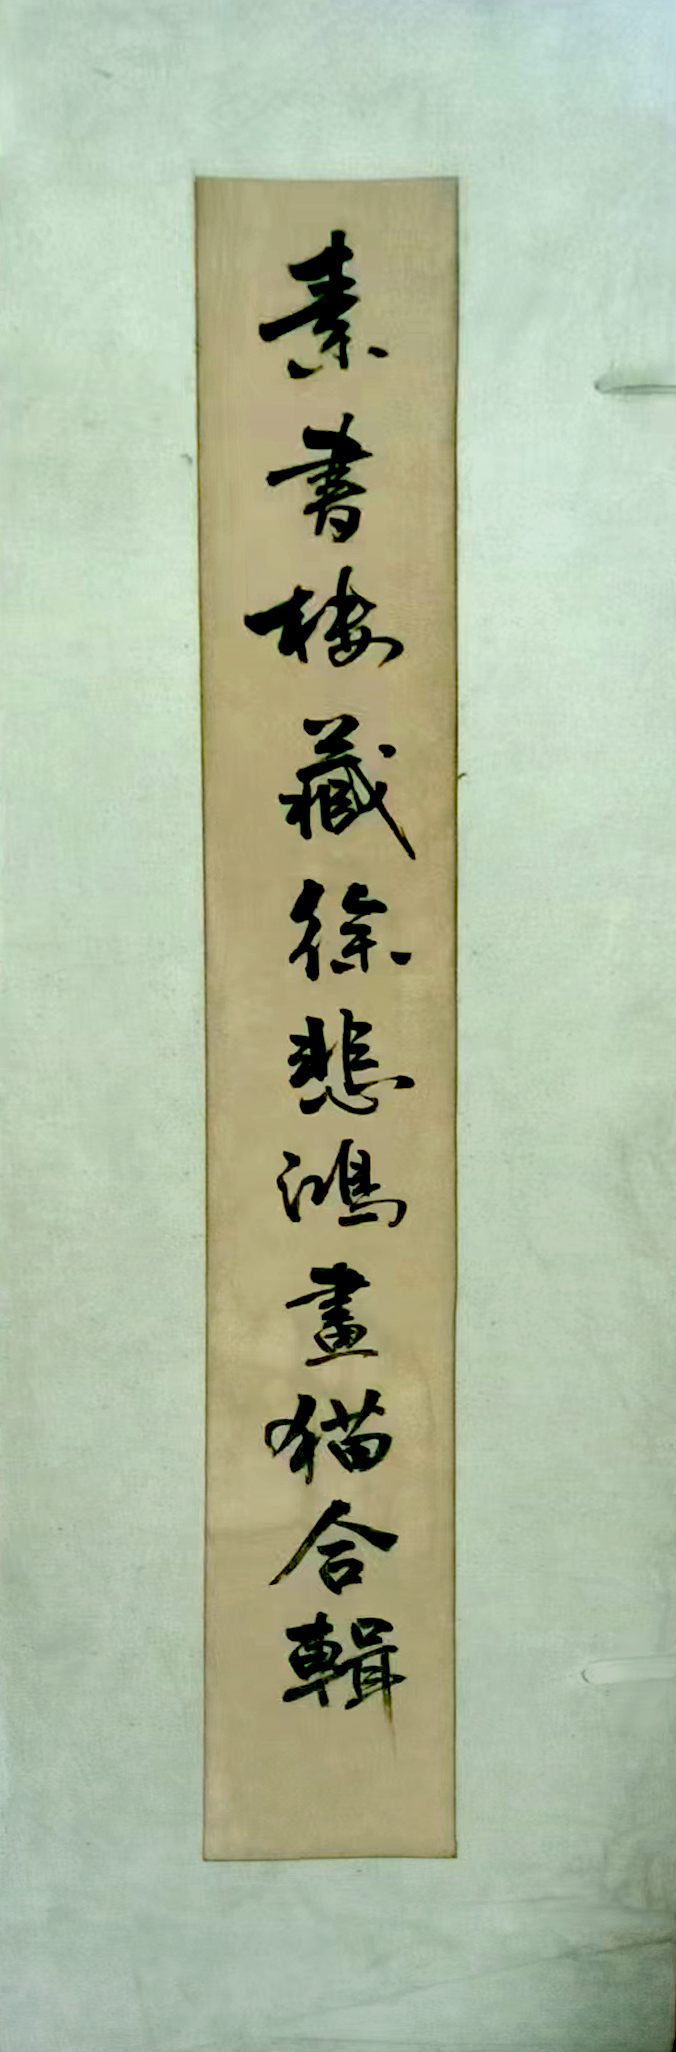 素書楼藏徐悲鴻畫猫合輯